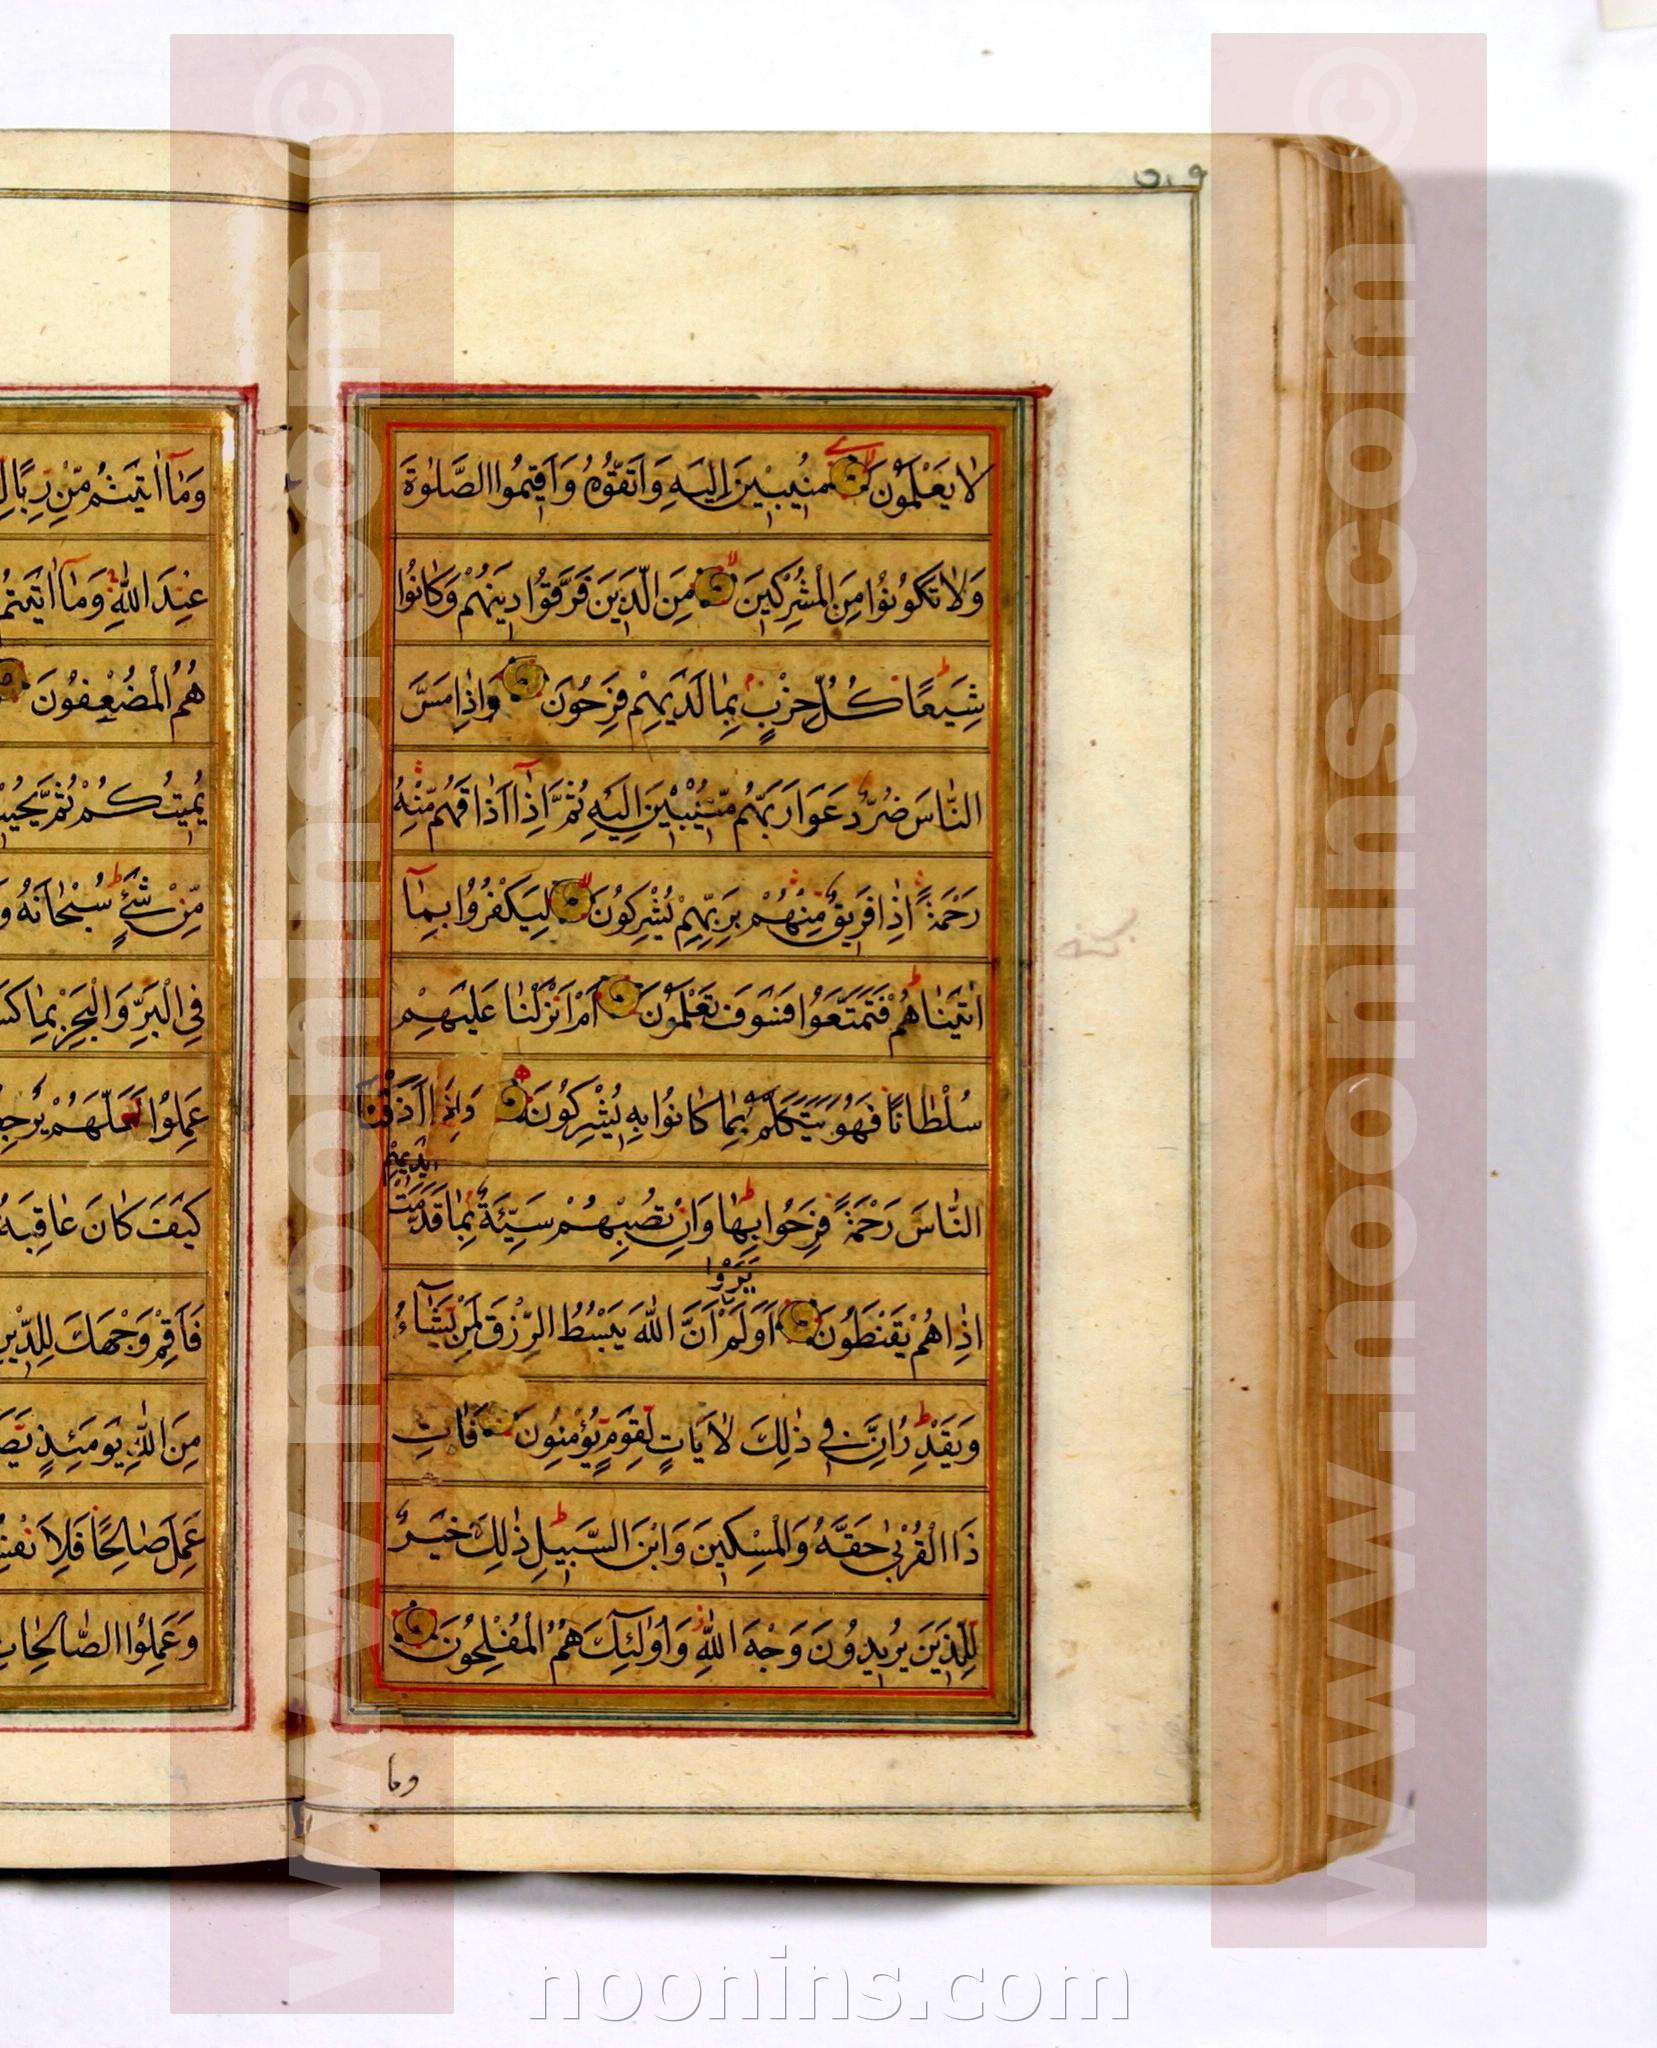 لا يَعْلَمُونَ مُنيبينَ اِلَيهِ وَاتَّقُوهُ وَاَقيمُوا الصَّلوٰةَ
وَلا تَكُونُوا مِنَ الْمُشْرِكينَ مِنَ الَّذينَ فَرَّقُوا دينَهُمْ وَكانُوا
شِيَعًا كُلُّ حِزْبٍ بِما لَدَيْهِمْ فَرِحُونَ وَاِذا مَسَّ
النّاسَ ضُرٌّ دَعَوا رَبَّهُم مُنيبينَ اِلَيْهِ ثُمَّ اِذا اَذاقَهُم مِّنْهُ
رَحْمَةً اِذا فَريقٌ مِنْهُمْ بِرَبِّهِمْ يُشْرِكُونَ لِيَكْفُرُوا بِمآ
اٰتَيْناهُمْ فَتَمَتَّعَوُا فَسَوفَ تَعْلَمُونَ اَمْ اَنْزَلْنا عَلَيْهِمْ
سُلْطانًا فَهُوَ يَتَكَلَّمُ بِما كانُوا بِهِ يُشْرِكُونَ وَاِذا اَذَقْنَا
النّاسَ رَحْمَةً فَرِحُوا بِها وَاِنْ تُصِبْهُمْ سَيِّئَةٌ بِما قَدَّمَتْ
اَيْديهِمْ
اِذا هُمْ يَقْنَطُونَ اَوَلَمْ اَنَّ اللّٰهَ يَبْسُطُ الرِّزْقَ لِمَنْ يَشآءُ
يَرَوْا
وَيَقْدِرُ اِنَّ في ذٰلِكَ لَاٰياتٍ لِقَومٍ يُؤْمِنُونَ فَاٰتِ
ذَا الْقُرْبىٰ حَقَّهُ وَالْمِسْكينَ وَابْنَ السَّبيلِ ذٰلِكَ خَيْرٌ
لِلَّذينَ يُريدُونَ وَجْهَ اللّٰهِ وَاُولٰئِكَ هُمُ الْمُفْلِحُونَ
وما
وَمآ اٰتَيْتُمْ مِّنْ رِبًا
عِنْدَ اللّٰهِ وَمآ اٰتَيْتُمْ
هُمُ الْمُضْعِفُونَ
يُميتُكُمْ ثُمَّ
مِّنْ شَىْءٍ سُبْحانَهُ
فِي الْبَرِّ وَالْبَحْرِ بِما
عَمِلُوا لَعَلَّهُمْ
كَيْفَ كانَ عاقِبَةُ
فَاَقِمْ وَجْهَكَ لِلدّينِ
مِنَ اللّٰهِ يَومَئِذٍ
عَمِلَ صالِحًا
وَعَمِلُوا الصّالِحاتِ
www.noonins.com ©
www.noonins.com ©
noonins.com